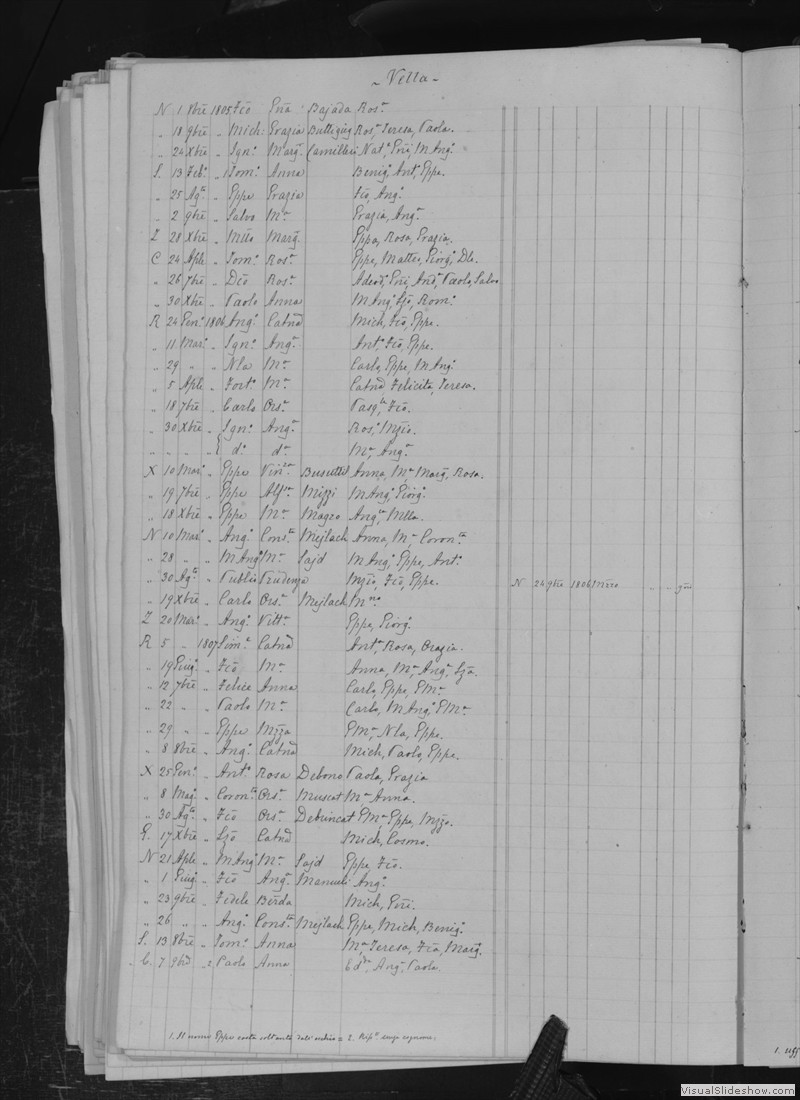 ~ Vella ~
N 1 8bre 1805 Fco Gna Bajada Rosa
„ 18 9bre „ Mich: Grazia Buttigieg Rosa, Teresa, Paola.
„ 24 Xbre „ Igno Marga Camilleri Nata, Gni, M Anga
S. 13 Feb. „ Tomo Anna Benigo, Anto, Eppe.
„ 25 Ago „ Eppe Grazia Fco, Ango
„ 2 9bre „ Salvo Ma Grazia, Anga
Z 28 Xbre „ Mteo Marga Eppa, Rosa, Grazia.
C 24 Aple „ Tomo Rosa Eppe, Matteo, Giorgo, Dle.
„ 26 7bre „ Dco Rosa Adeodo, Gni, Anda, Paolo, Salvo
„ 30 Xbre „ Paolo Anna M Ango, Lzo, Romo
R 24 Geno 1806 Ango Catna Mich, Fco, Eppe.
„ 11 Maro „ Igno Anga Anto, Fco, Eppe.
„ 29 „ „ Nla Ma Carlo, Eppe, M Ango
„ 5 Aple „ Forto Ma Catna, Felicita, Teresa.
„ 18 7bre „ Carlo Orsa Pasqle, Fco.
„ 30 Xbre „ Igno Anga Roso, Mzio.
„ „ „ „ do da Ma, Anga
X 10 Maro „ Eppe Vinza Busuttil Anna, Ma, Marga, Rosa.
„ 19 7bre „ Eppe Alfsa Mizzi M Ango, Giorgo
„ 18 Xbre „ Eppe Ma Magro Angca, Mlla.
N 10 Maro „ Ango Consta Mejlach Anna, Ma, Coronta
„ 28 „ „ M Ango Ma Sajd M Ango, Eppe, Anto
„ 30 Ago „ Publio Prudenza Mzio, Fco, Eppe. N 24 9bre 1806 Mzzo „ „
„ 19 Xbre „ Carlo Orsa Mejlach Mno
Z 20 Maro „ Ango Vitta Eppe, Giorgo
R 5 „ 1807 Simo Catna Anta, Rosa, Orazia.
„ 19 Giugo „ Fco Ma Anna, Ma, Anga, Lza.
„ 12 7bre „ Felice Anna Carlo, Eppe, GMa
„ 22 „ „ Paolo Ma Carlo, M Ango, GMa
„ 29 „ „ Eppe Mzza GMa, Nla, Eppe.
„ 8 8bre „ Ango Catna Mich, Paolo, Eppe.
X 25 Geno „ Anto Rosa Debono Paola, Grazia
„ 8 Mago „ Coronto Orsa Muscat Ma, Anna.
„ 30 Ago „ Fco Orsa Debrincat GMa, Eppa, Mzza.
G. 17 Xbre „ Lzo Catna Mich, Cosmo.
N 21 Aple „ M Ango Ma Sajd Eppe, Fco.
„ 1 Giugo „ Fco Anga Manueli Ango
„ 23 9bre „ Fedele Berda Mich, Gni.
„ 26 „ „ Ango Consta Mejlach Eppe, Mich, Benigo
S. 13 8bre „ Tomo Anna Ma, Teresa, Fca, Marga.
C. 7 9bre „ 2 Paolo Anna Anga, Paola.
1. Il nome Eppe costa soltanto dall' = 2. Ripo senza cognome.
VisualSlideshow.com